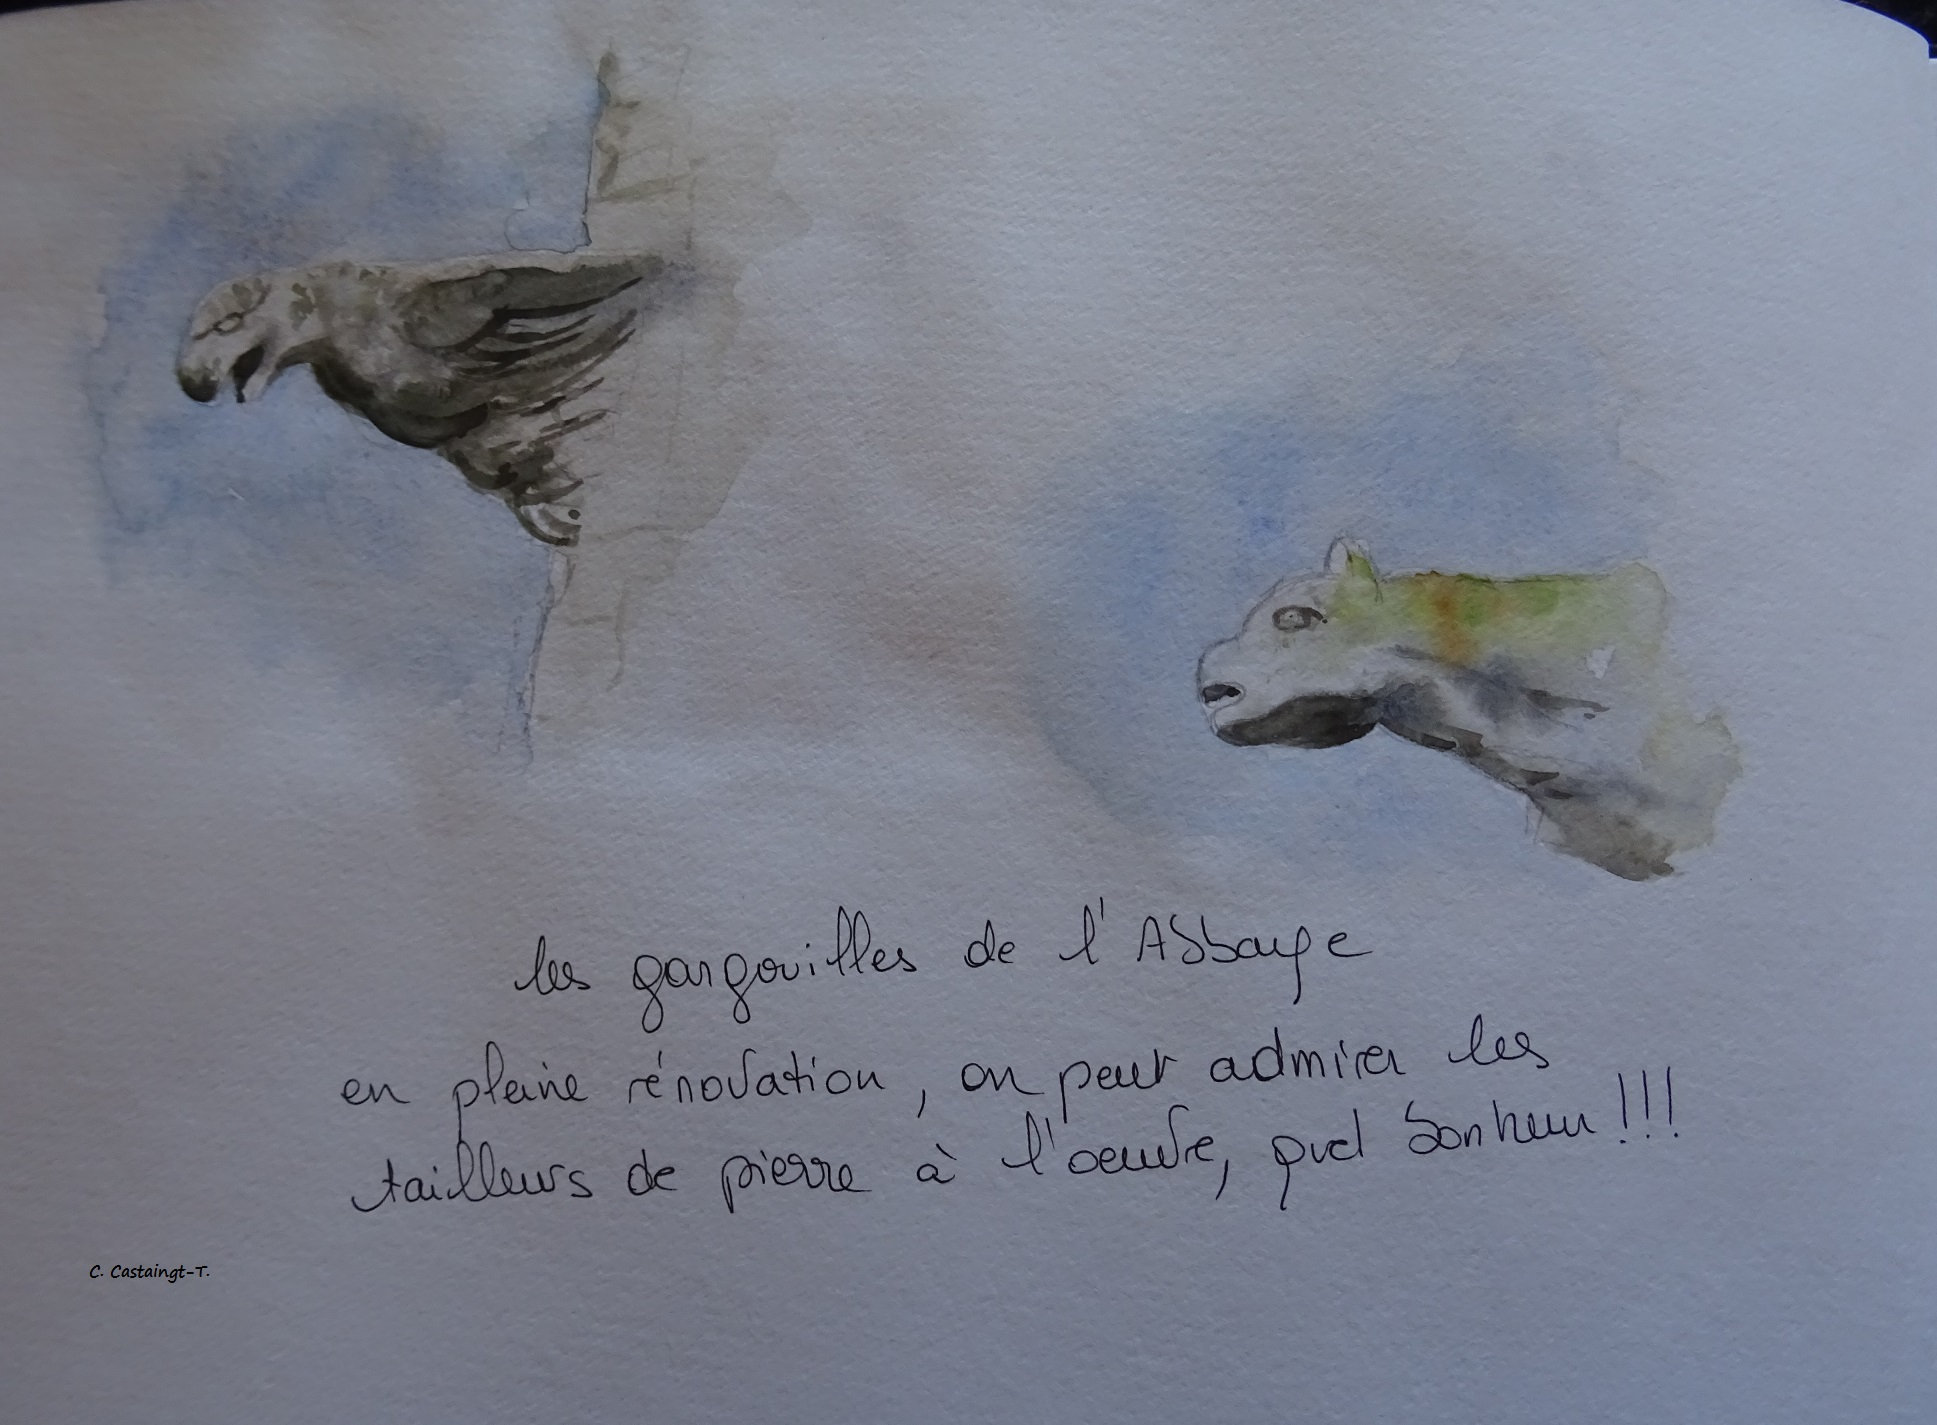 les gargouilles de l'Abbaye
en pleine rénovation, on peut admirer les
tailleurs de pierre à l'oeuvre, quel bonheur !!!
C. Castaingt-T.